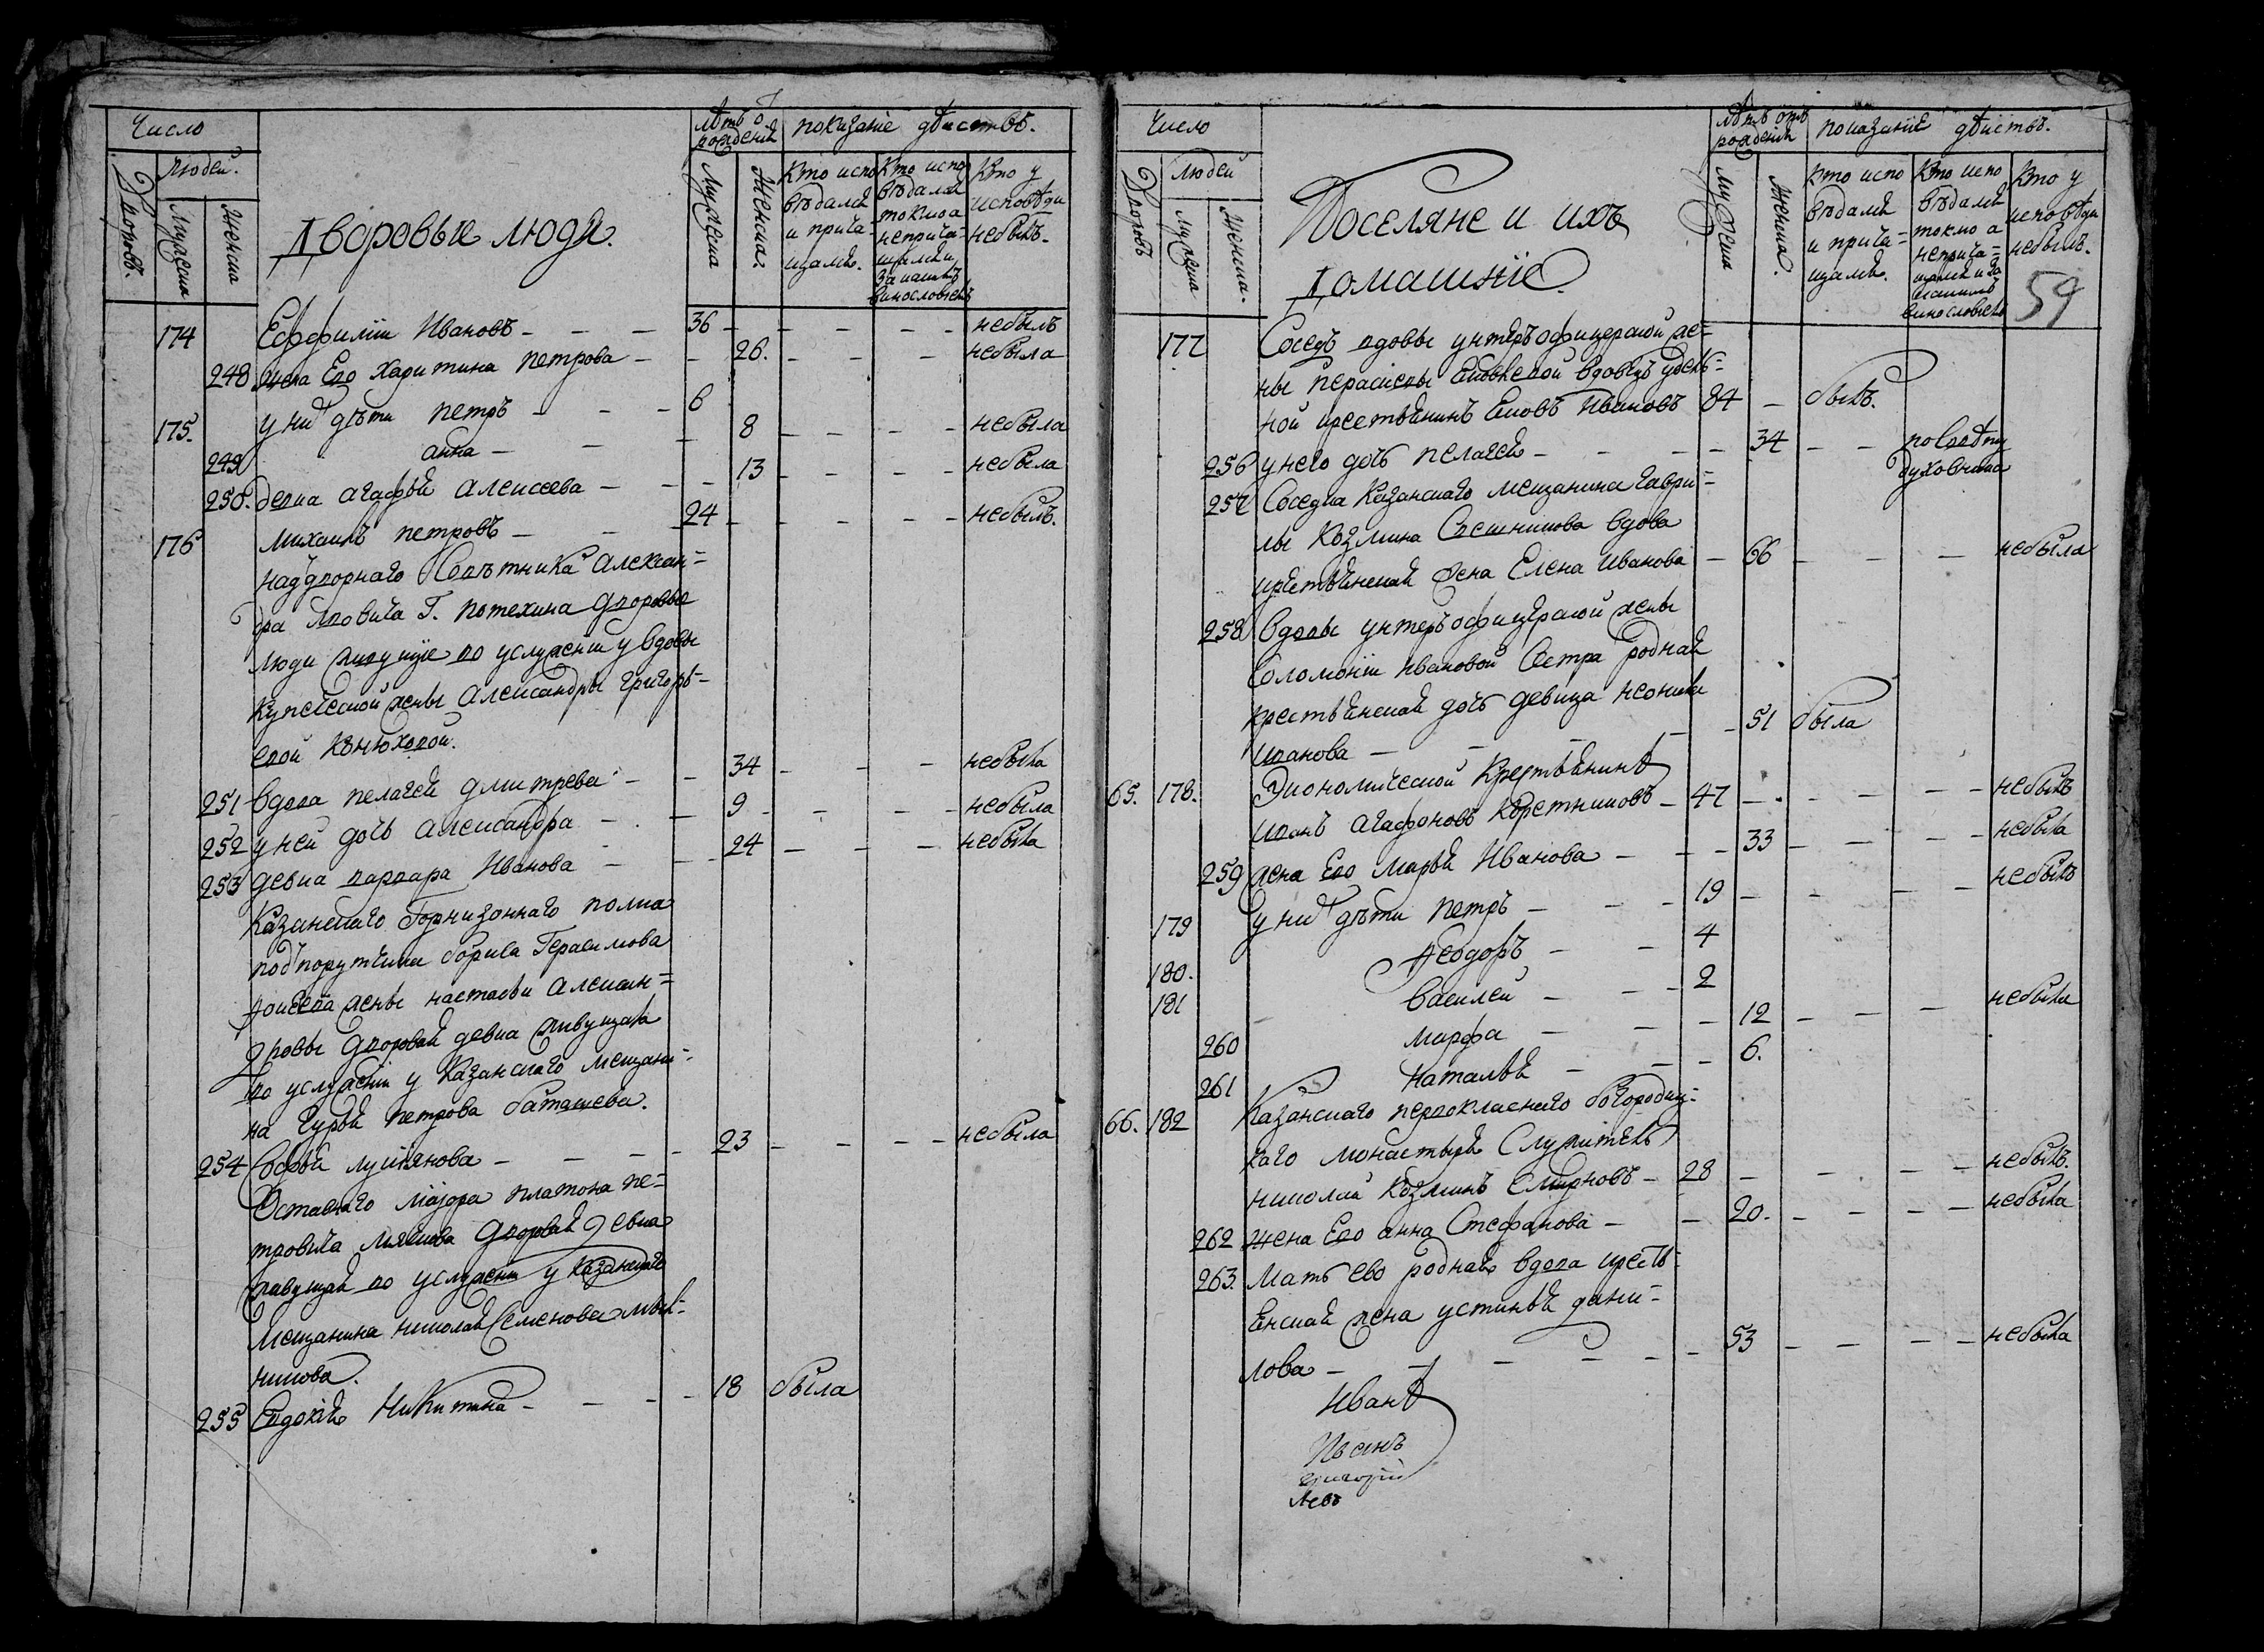 Число
людей.
Дворовъ.
Мужеска
Женска
Дворовые люди.
лѣтъ о
рожденія
Мужеска
Женска.
показаніе дѣйствъ.
Кто испо
вѣдался
и прича-
щался.
Кто испо
вѣдался
токмо а
неприча-
щался и
за какимъ
винословіемъ
Кто у
исповѣди
небылъ.
174 Евфимій Ивановъ - - - 36 - - - - - небылъ
248 жена Его Харитина Петрова - - 26. - - - небыла
175. у них дѣти петръ - - - 6
249 анна - - - 8 - - - - небыла
250. девка агафья алексеева - - - 13 - - - - небыла
176 михаилъ петровъ - - - 24 - - - - - небылъ.
надворнаго Совѣтника алексан-
дра Г. потехина дворовые
люди живущіе по услуженіи у вдовы
купеческой жены александры григорь-
евой конюховой.
251 вдова пелагея дмитрева - - 34 - - - небыла
252 у ней дочь александра - - 9 - - - - небыла
253 девка варвара Иванова - - - 24 - - - небыла
Казанскаго Горнизоннаго полка
подпорутчика бориса Герасимова
жены настасьи алексан-
дровы дворовая девка живущая
по услуженіи у Казанскаго мещани-
на гурья петрова баташева.
254 Софья лукіянова - - - - 23 - - - - небыла
Отставнаго маіора платона пе-
тровича дворовая девка
живущая по услуженіи у казанскаго
мещанина николая Семенова
никова.
255 Евдокія Никитина - - - - 18 была
Число
людей
Дворовъ
Мужеска
Женска.
Поселяне и ихъ
домашніе.
лѣтъ отъ
рожденія
мужеска
женска.
показаніе дѣйствъ.
кто испо
вѣдался
и прича=
щался.
Кто испо
вѣдался
токмо а
неприча=
щался и за
какимъ
винословіемъ
Кто у
исповѣди
небылъ.
59
177 Соседъ вдовы унтеръ офицерской же=
ны вдовецъ удель=
ной крестьянинъ Ивановъ 84 - былъ.
256 у него дочь пелагея - - - - 34 - - по совѣту
духовника
257 Соседка Казанскаго мещанина гаври=
лы Козмина вдова
крестьянская жена Елена Иванова - 66 - - - небыла
258 вдовы унтеръ офицерской жены
Соломоніи ивановой Сестра родная
крестьянская дочь девица неонила
иванова - - - - - 51 была
65. 178. Экономической Крестьянинъ
иванъ агафоновъ - 47 - - - - - небылъ
259 жена Его марья Иванова - - - 33 - - - - небыла
179 у них дѣти петръ - - - 19 - - - - небылъ
180. Ѳеодоръ - - 4
181 Василей - - - 2
260 марфа - - - 12 - - - - небыла
261 наталья - - - 6.
66. 182 Казанскаго первокласнаго богородиц-
каго монастыря Служитель
николай Козминъ Смирновъ - 28 - - - - небылъ.
262 жена Его анна Стефанова - - 20. - - - - небыла
263. мать ево родная вдова кресть-
енская жена устинья дани=
лова - - - - - - 53 - - - - небыла
Иванъ
Иванъ
григорій
Левъ